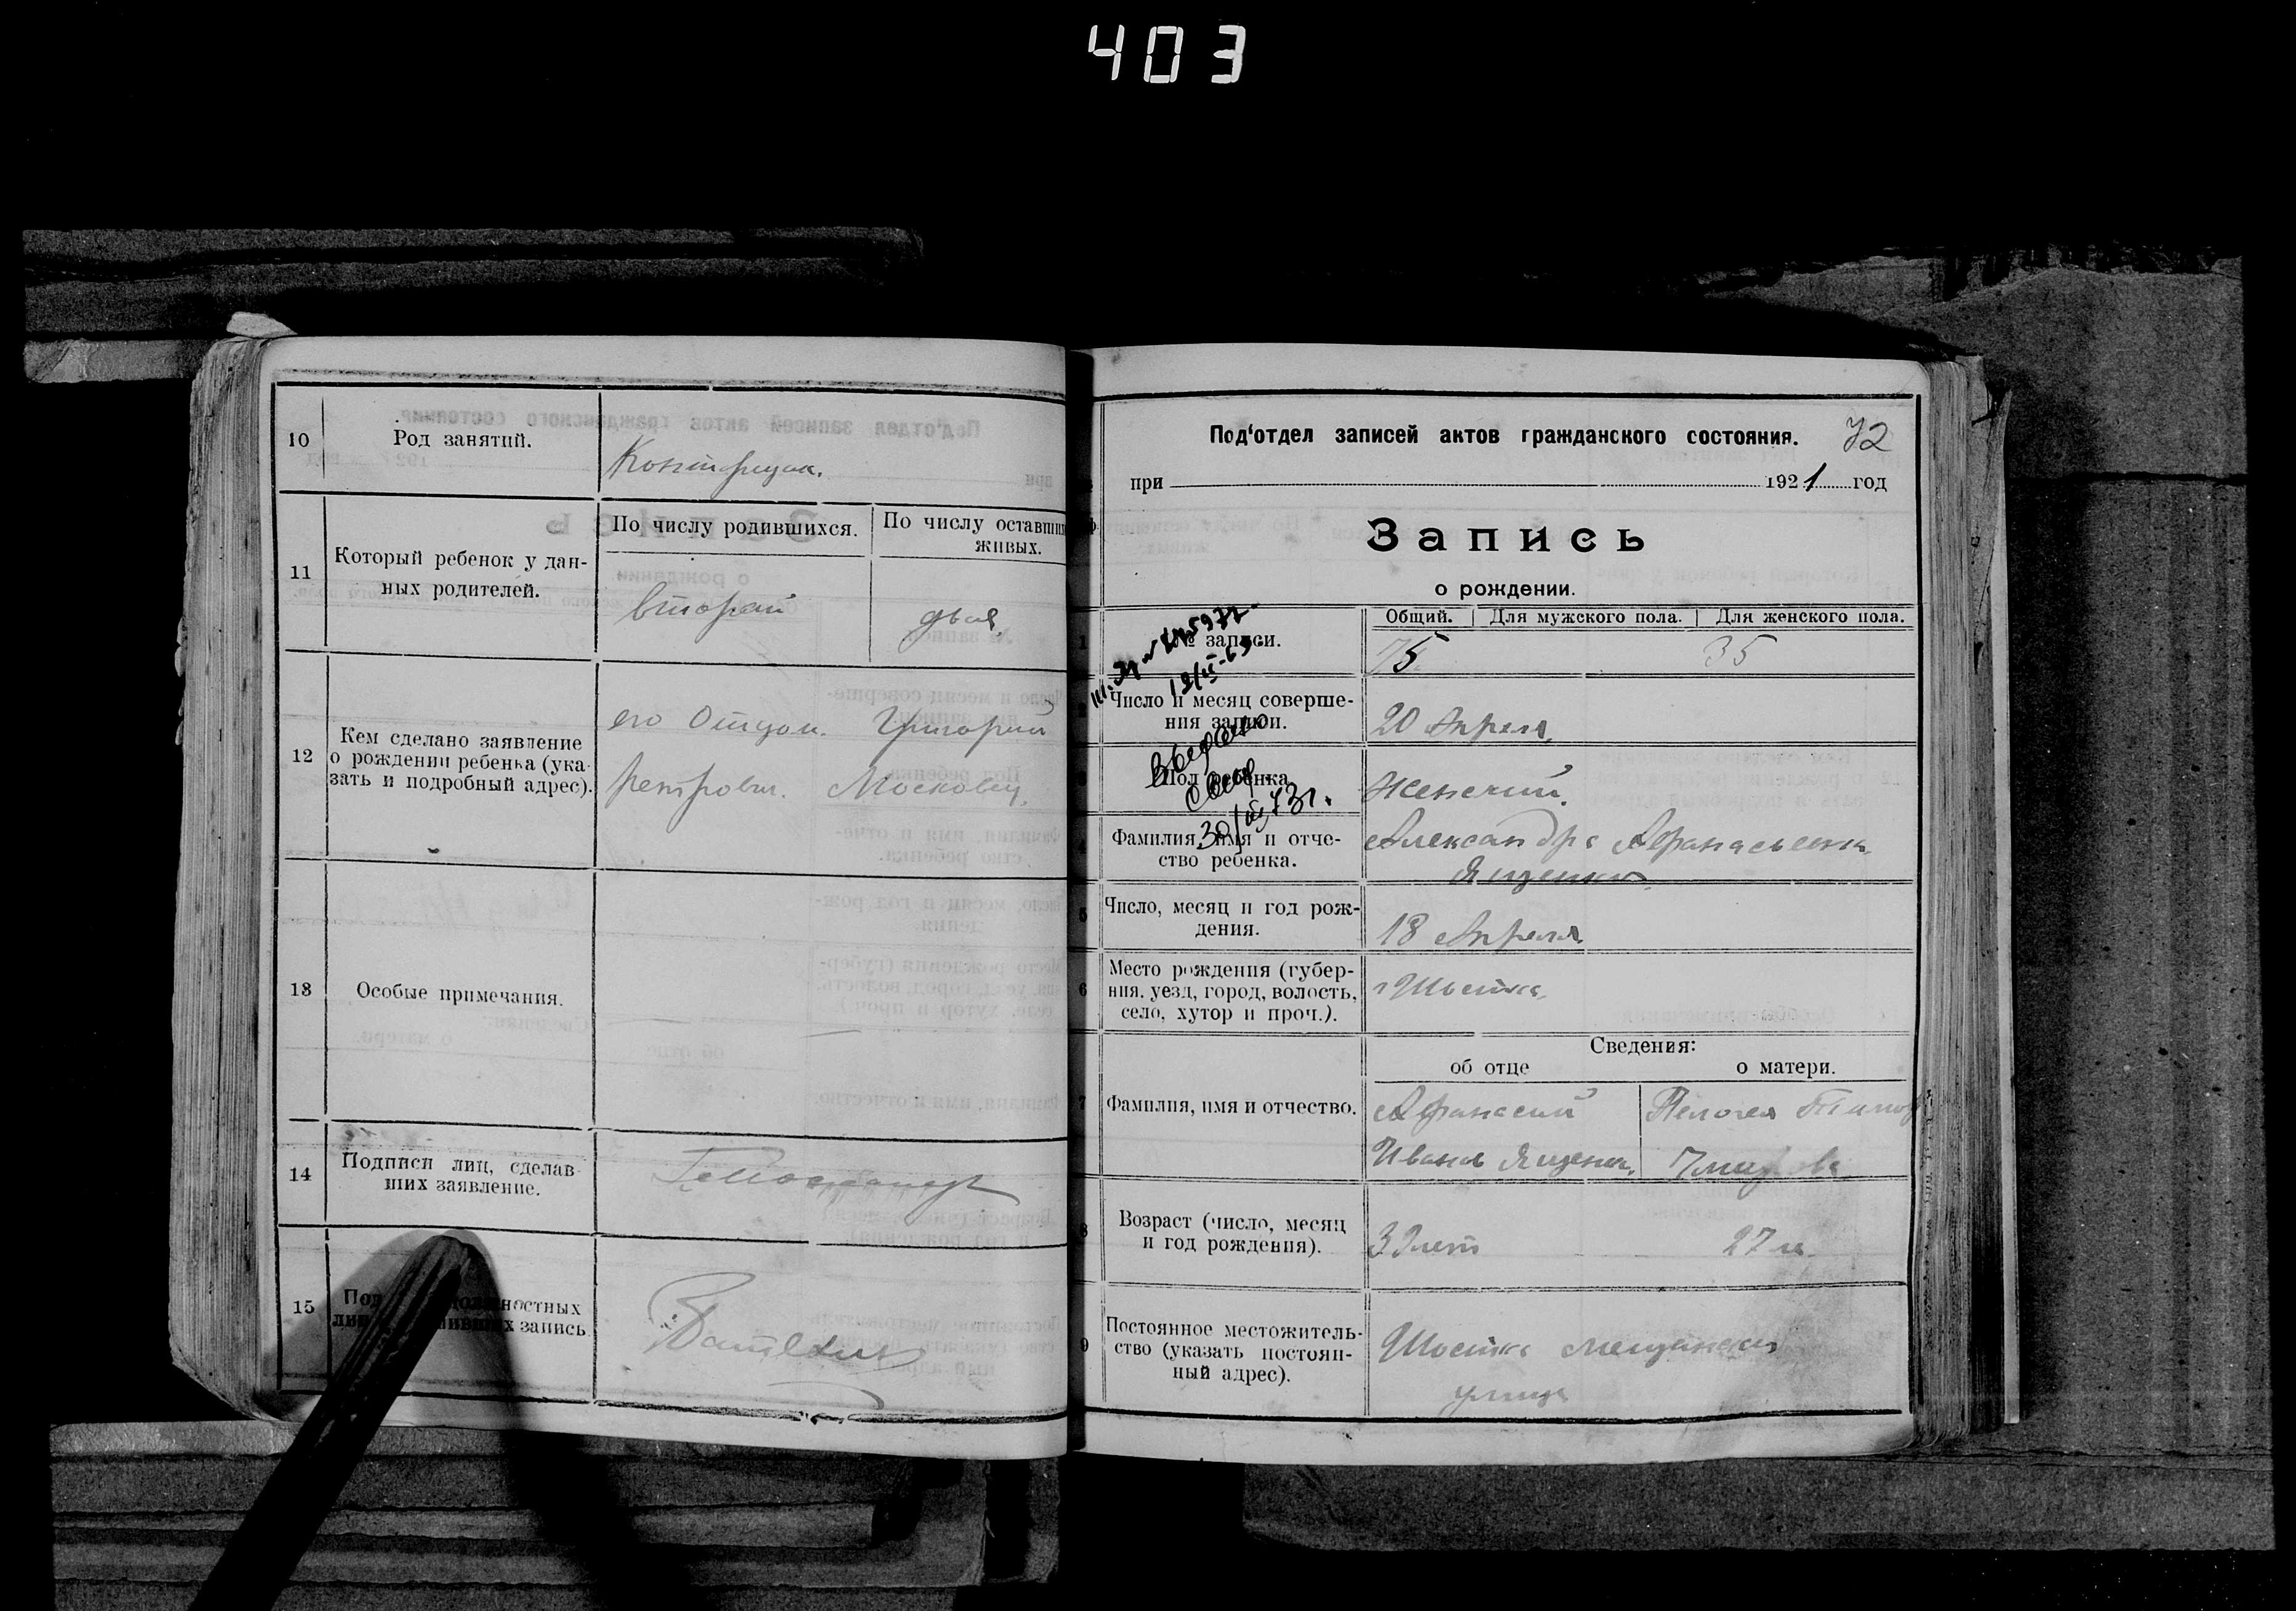 403
10
Род занятий.
Конторщик.
11
Который ребенок у дан-
ных родителей.
По числу родившихся.
По числу оставши
живых.
второй
двая
12
Кем сделано заявление
о рождении ребенка (ука-
зать и подробный адрес).
его Отцом. Григорий
Петрович. Московец
13
Особые примечания.
14
Подписи лиц, сделав-
ших заявление.
15
Под ностных
запись
Под‘отдел записей актов гражданского состояния.
72
при 1921 год
Запись
о рождении.
1
№ записи.
Общий. Для мужского пола. Для женского пола.
75 35
Число и месяц соверше-
ния записи.
20 Апреля.
Пол ребенка
Женский.
30/III-73г.
Фамилия, имя и отче-
ство ребенка.
Александра Афанасьевна
Ященко
5
Число, месяц и год рож-
дения.
18 Апреля
6
Место рождения (губер-
ния, уезд, город, волость,
село, хутор и проч.).
г Шостка
Сведения:
об отце о матери.
7
Фамилия, имя и отчество.
Афанасий
Иванов Ященко.
Пелогея
8
Возраст (число, месяц
и год рождения).
32 лет 27 л.
9
Постоянное местожитель-
ство (указать постоян-
ный адрес).
Шостка Мещанская
улица